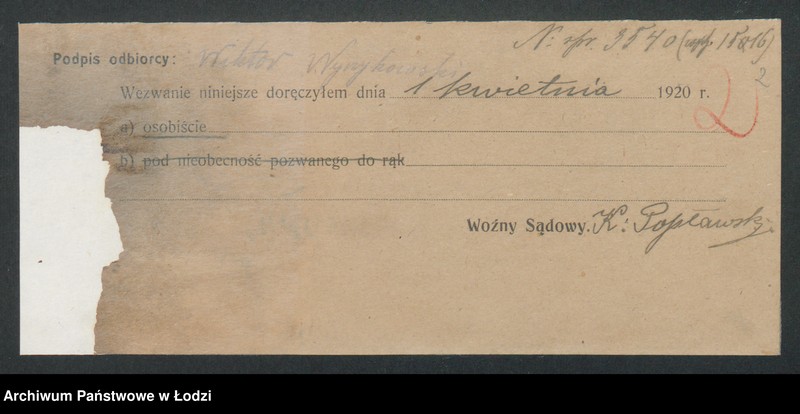 N: spr. 3540 (wpł. 1916)
2
Podpis odbiorcy: Wiktor
Wezwanie niniejsze doręczyłem dnia 1 kwietnia 1920 r.
2
a) osobiście
b) pod nieobecność pozwanego do rąk
Woźny Sądowy. K: Popławski
Archiwum Państwowe w Łodzi